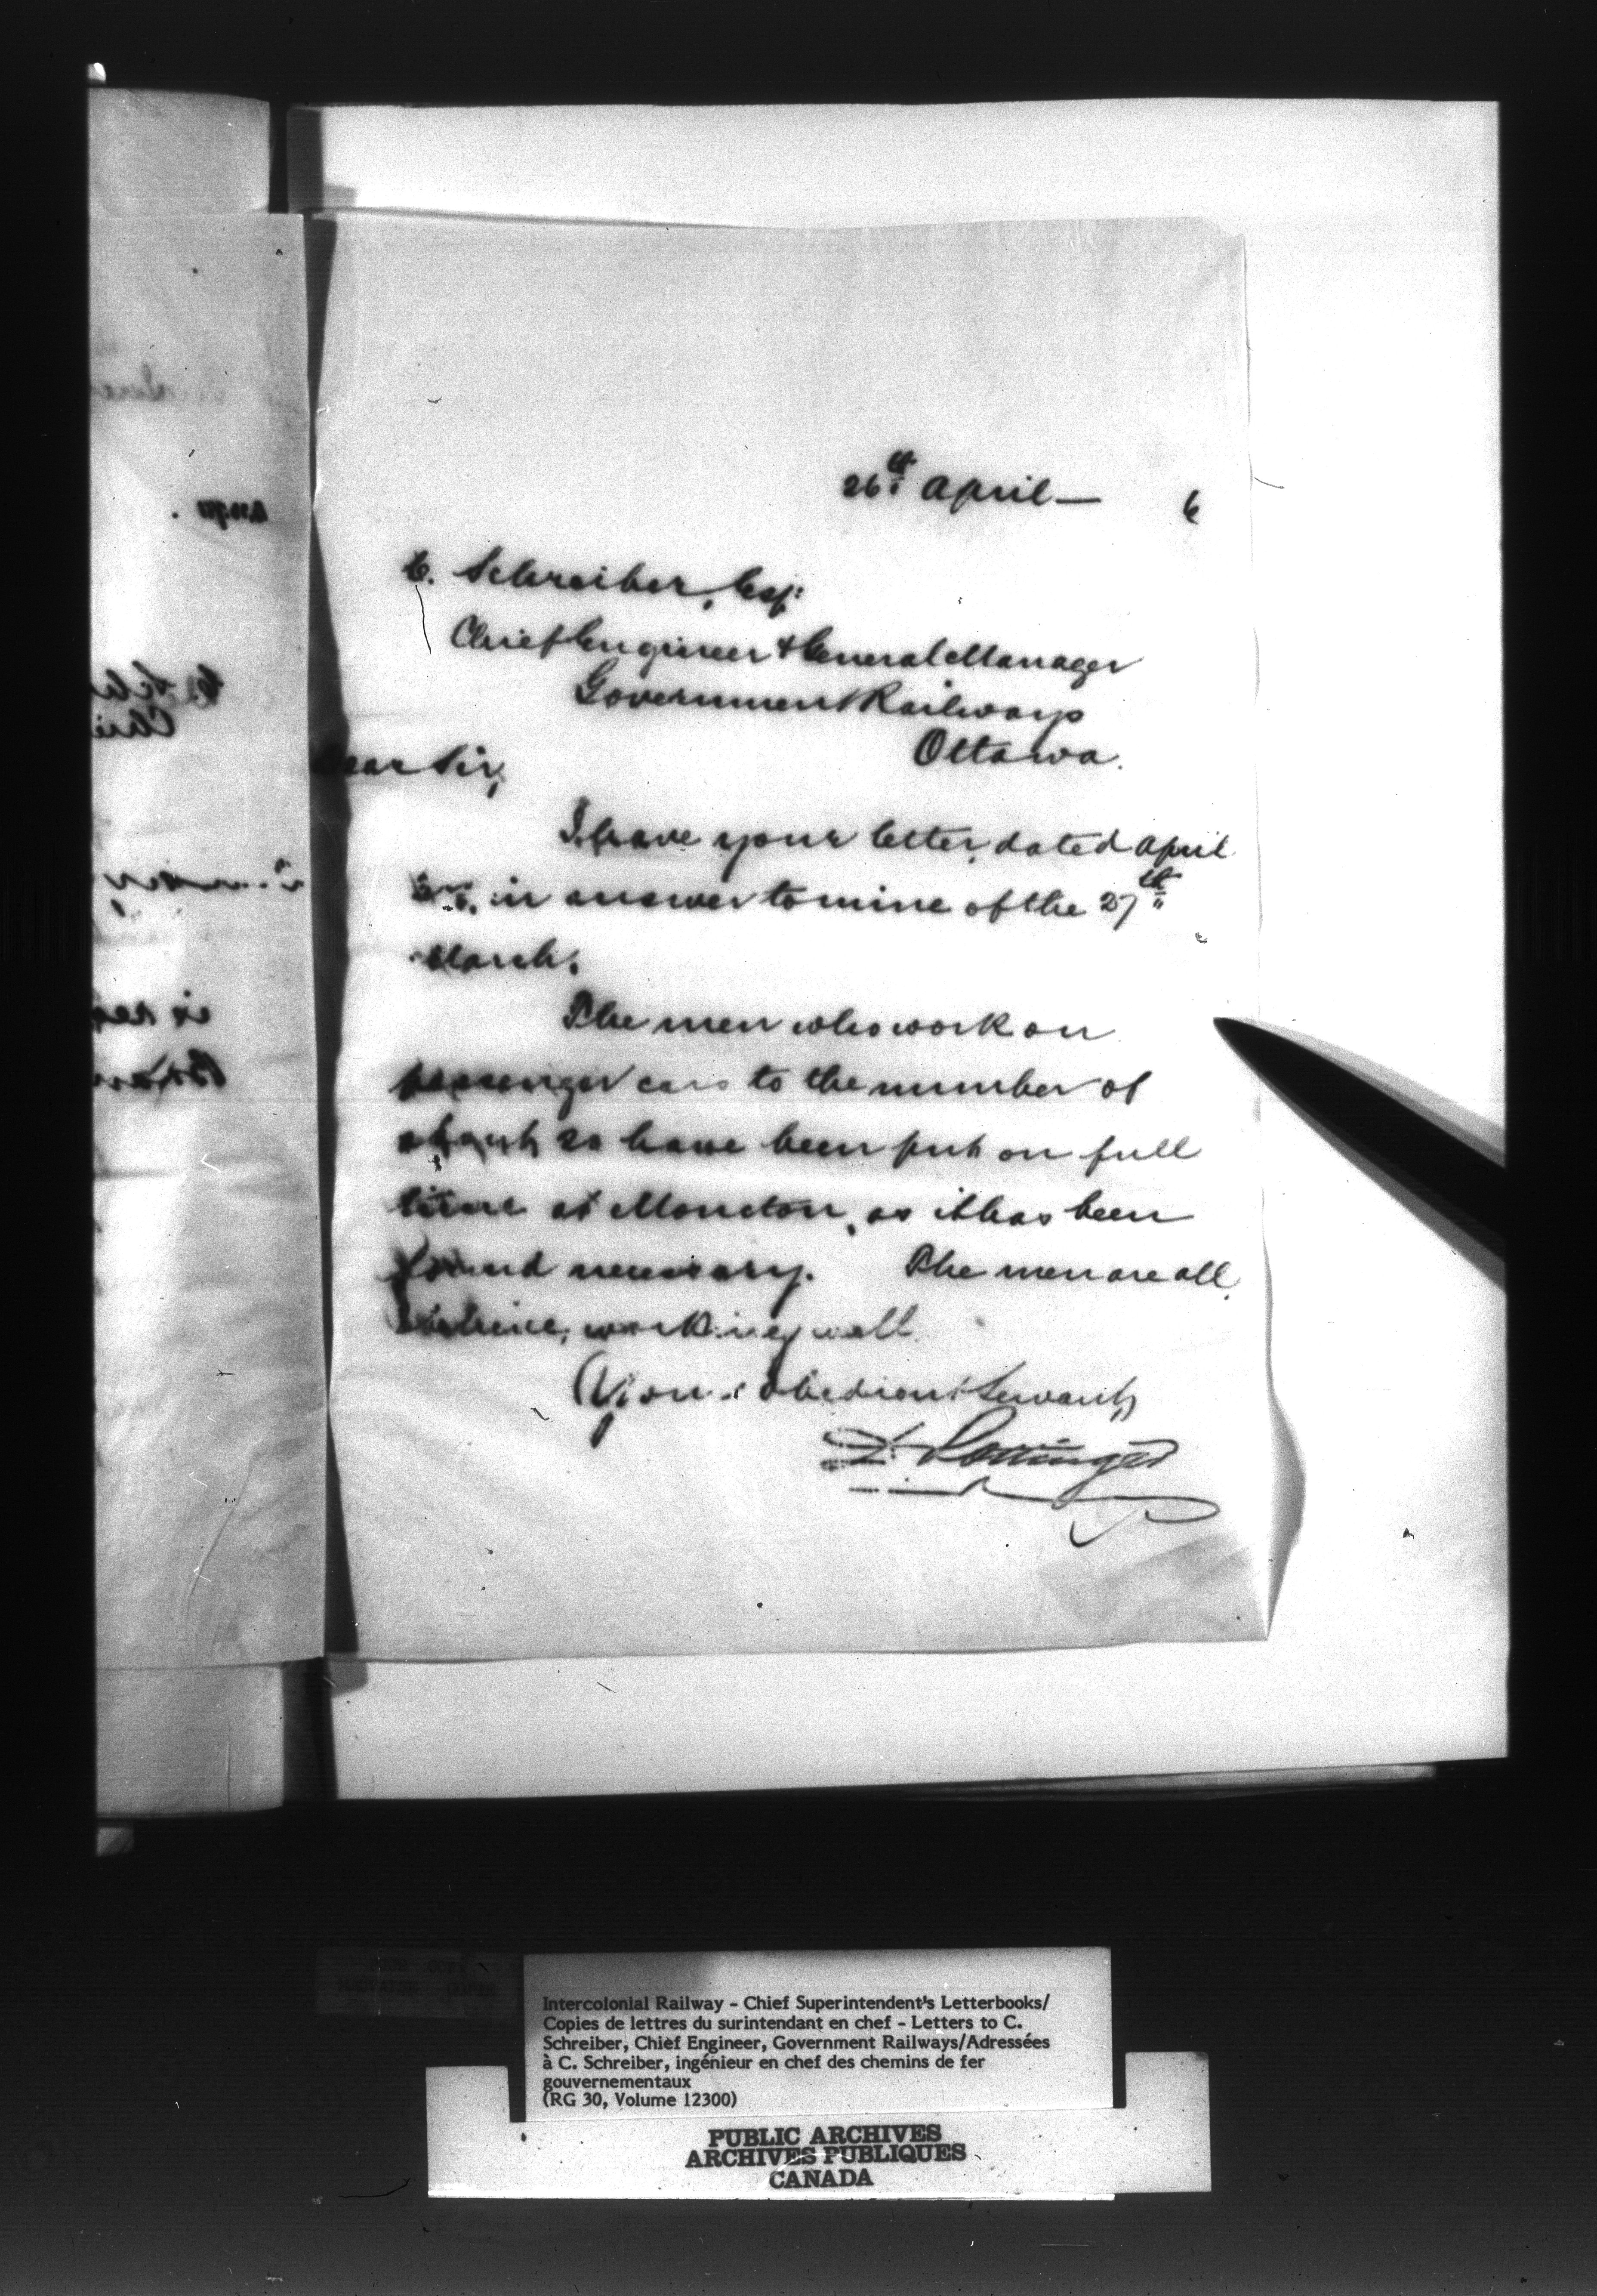 26th April — 6
C. Schreiber, Esq:
Chief Engineer & General Manager
Government Railways
Ottawa.
Dear Sir,
I have your letter, dated April
in answer to mine of the 27th
March.
The men who work on
passenger cars to the number of
about 20 have been put on full
time at Moncton, as it has been
found necessary. The men are all,
working well
Your obedient Servant,
D. Pottinger
Intercolonial Railway – Chief Superintendent's Letterbooks/
Copies de lettres du surintendant en chef – Letters to C.
Schreiber, Chief Engineer, Government Railways/Adressées
à C. Schreiber, ingénieur en chef des chemins de fer
gouvernementaux
(RG 30, Volume 12300)
PUBLIC ARCHIVES
ARCHIVES PUBLIQUES
CANADA